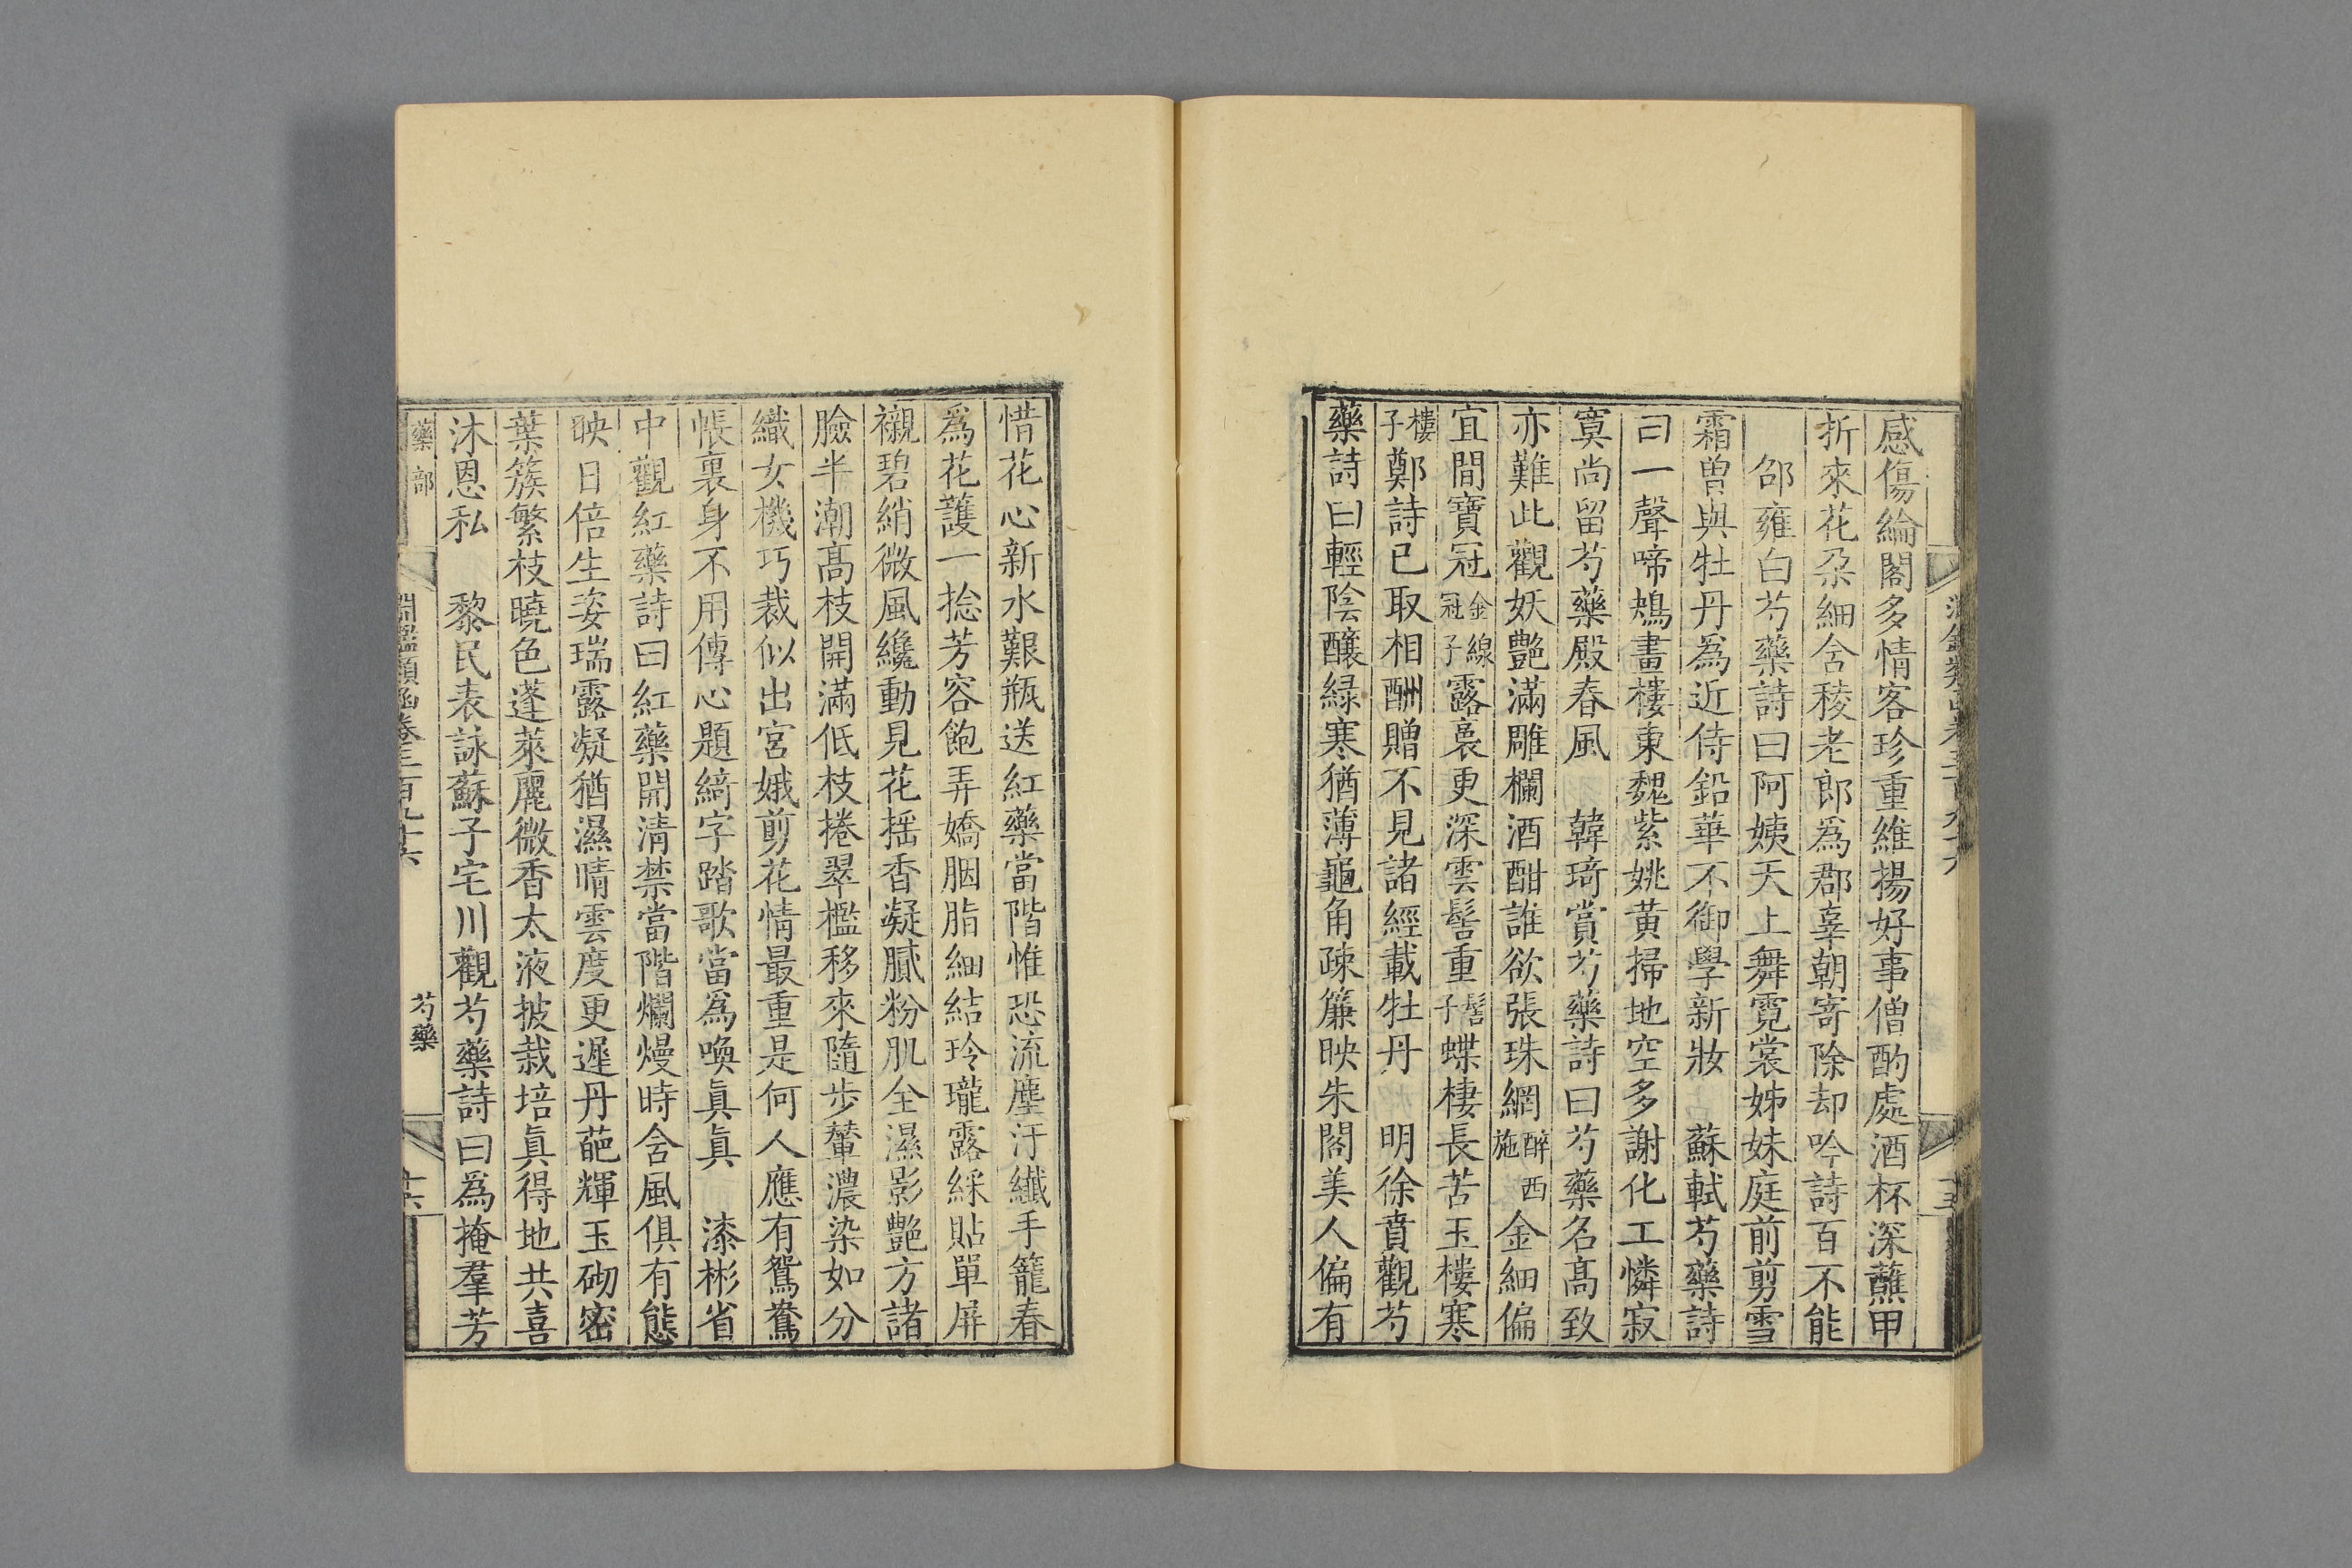 感傷綸閣多情客珍重維揚好事僧酌處酒杯深蘸甲
折來花朶細含稜老郎爲郡辜朝寄除却吟詩百不能
邵雍白芍藥詩曰阿姨天上舞霓裳姊妹庭前剪雪
霜曾與牡丹爲近侍鉛華不御學新妝　蘇軾芍藥詩
曰一聲啼鴂畫樓東魏紫姚黃掃地空多謝化工憐寂
寞尚留芍藥殿春風　韓琦賞芍藥詩曰芍藥名高致
亦難此觀妖艶滿雕欄酒酣誰欲張珠網醉西施金細偏
宜間寶冠金線冠子露裛更深雲髻重髻子蝶棲長苦玉樓寒
樓子鄭詩已取相酬贈不見諸經載牡丹　明徐賁觀芍
藥詩曰輕陰釀綠寒猶薄龜角疎簾映朱閣美人偏有
惜花心新水艱瓶送紅藥當階惟恐流塵汙纖手籠春
爲花護一捻芳容飽弄嬌胭脂細結玲瓏露綵貼單屏
襯碧綃微風纔動見花搖香凝膩粉肌全濕影艶方諸
臉半潮高枝開滿低枝捲翠檻移來隨步輦濃染如分
織女機巧裁似出宮娥剪花情最重是何人應有鴛鴦
帳裏身不用傳心題綺字踏歌當爲喚眞眞　漆彬省
中觀紅藥詩曰紅藥開淸禁當階爛熳時含風俱有態
映日倍生姿瑞露凝猶濕晴雲度更遲丹葩輝玉砌密
葉簇繁枝曉色蓬萊麗微香太液披栽培眞得地共喜
沐恩私　黎民表詠蘇子宅川觀芍藥詩曰爲掩羣芳
藥部　淵鑑類函卷三百九十六　芍藥　十六